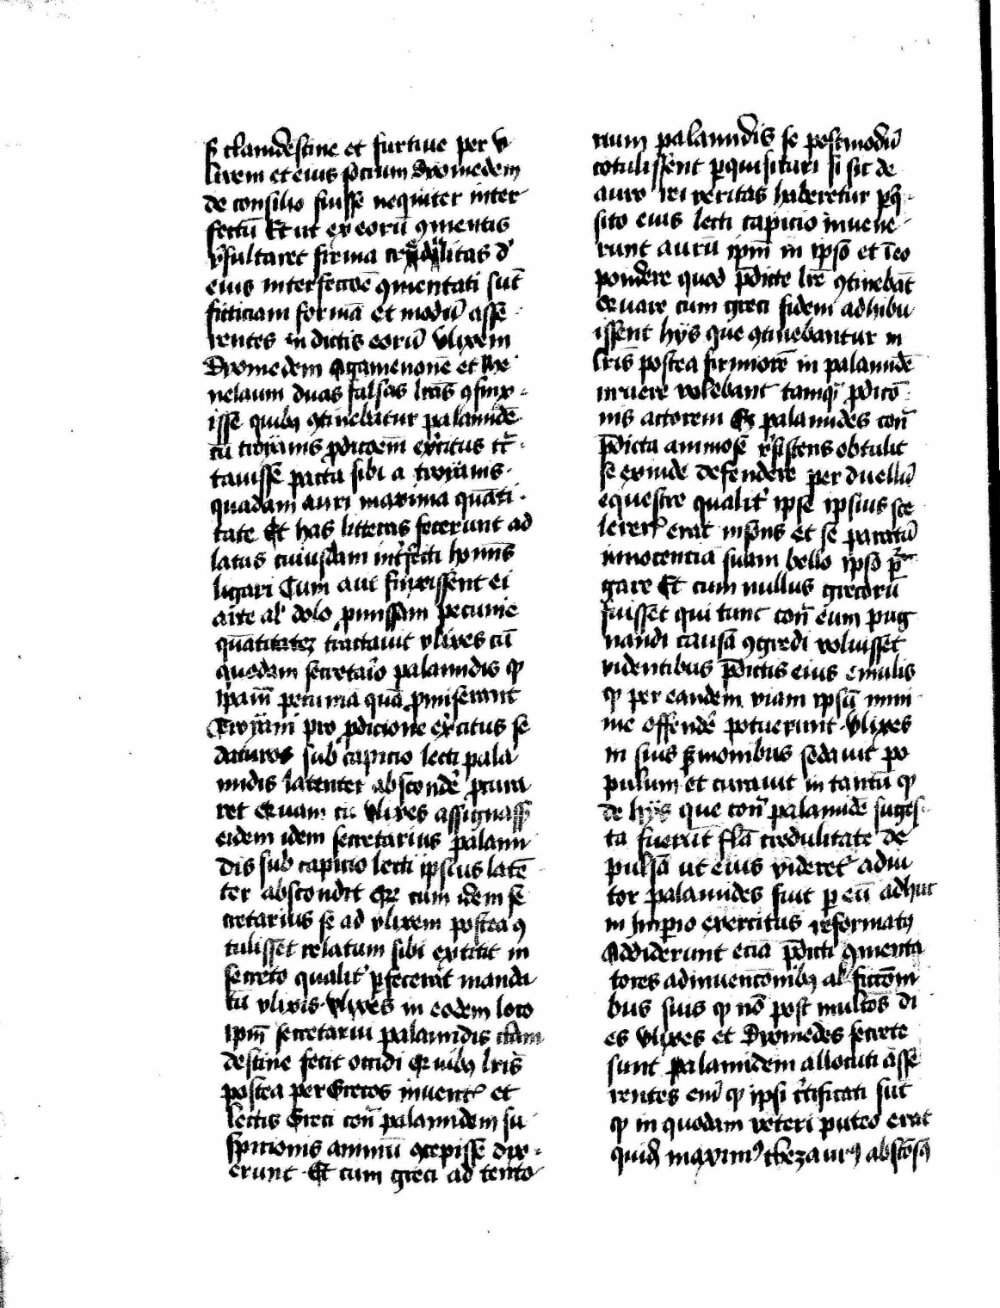 s clamdestine et furtiue per v
lixem et eius socium dyomedem
de consilio fuisse nequiter inter
fectū Et ut ex eorū ɔmentis
r̄sultaret firma credulitas d'
eius interfectōe ɔmentati sūt
fictitiam formā et modū asse
rentes in dictis eorū vlixem
Dyomedem Agamenonē et Me
nelaum duas falsas lrās ɔfinx
isse quibꝫ ɔtinebatur palamidē
cū troyanis ꝓdicōem exercitus tr̄
tauisse pacta sibi a troyanis
quadam auri maxima quāti
tate Et has litteras fecerunt ad
latus cuiusdam int̓fecti hominis
ligari Cum aut̄ finxissent ei
arte al' dolo ꝓmissam pecunie
quātitatez tractauit vlixes cū
quodam secretario palamidis ꝙ
ipam̄ pecunia quā ꝓmiserant
Troyani pro ꝓdicione exercitus se
daturos sub capicio lecti pala
midis latenter abscondē ꝓcura
ret Quam cū vlixes assignass
eidem idem secretarius palami
dis sub capicio lecti ipsius latē
ter abscondit Qui cum idem se
cretarius se ad vlixem postea ɔ
tulisset relatum sibi extitit in
secreto qualit' ꝑfecerat manda
tū vlixis vlixes in eodem loco
ipm̄ secretariū palamidis clam
destine fecit occidi Quibꝫ lris̄
postea per Grecos inuent' et
lectis Greci cont̄ palamidem su
spitionis animū ɔcepisse dix
erunt Et cum greci ad tento
rium palamidis se postmodū
cōtulissent ꝑquisituri si sic de
auro rei veritas haberetur ꝑq̄
sito eius lecti capicio inuene
runt aurū ipm̄ in ipso et in eo
pondere quod p̄dicte lrē ɔtinebāt
Quare cum greci fidem adhibu
issent hys que ɔtinebantur in
lris̄ postea firmiorē in palamidē
irruere volebant tamq̄ ꝓdito
nis actorem Et palamides cont̄
p̄dicta animose r̄sistens obtulit
se exinde defendere per duellū
equestre qualit' ipse ipsius sce
leren' erat insons et se paratū
innocentiā suam bello ipso pur
gare Et cum nullus grecorū
fuisset qui tunc cont̄ eum pug
nandi causā ɔgredi voluisset
videntibus p̄dictis eius emulis
ꝙ per eandem viam ipsū mini
me offendē potuerunt vlixes
in suis s̄monibus sedauit po
pulum et curauit in tantū ꝙ
de hys que cont̄ palamidē suges
ta fuerūt fl̄ā credulitate de
pulsā ut eius videret' adiu
tor palamides fuit ꝑ eū adhuc
in Imperio exercitus reformatꝫ
Addiderunt ecia p̄dicti ɔmenta
tores adinuentōnibꝫ al' fictōni
bus suis ꝙ nō post multos di
es vlixes et Dyomedes secrete
sunt palamidem allocuti asse
rentes eni' ꝙ ipsi c̄tificati sūt
ꝙ in quodam veteri puteo erat
quidā maxim' thezaurꝫ abscōsꝫ